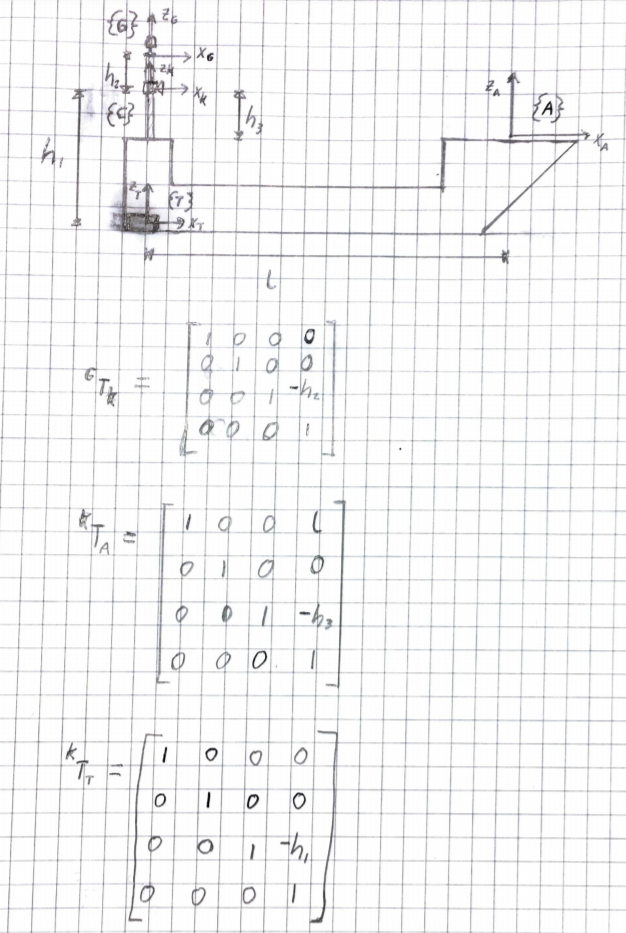 {G} z_G
x_G
h_2 z_K
x_K
{C}
h_3
h_1
z_A {A}
x_A
z_T {T}
x_T
L
^G T_K =
1 0 0 0
0 1 0 0
0 0 1 -h_2
0 0 0 1
^K T_A =
1 0 0 L
0 1 0 0
0 0 1 -h_3
0 0 0 1
^K T_T =
1 0 0 0
0 1 0 0
0 0 1 -h_1
0 0 0 1